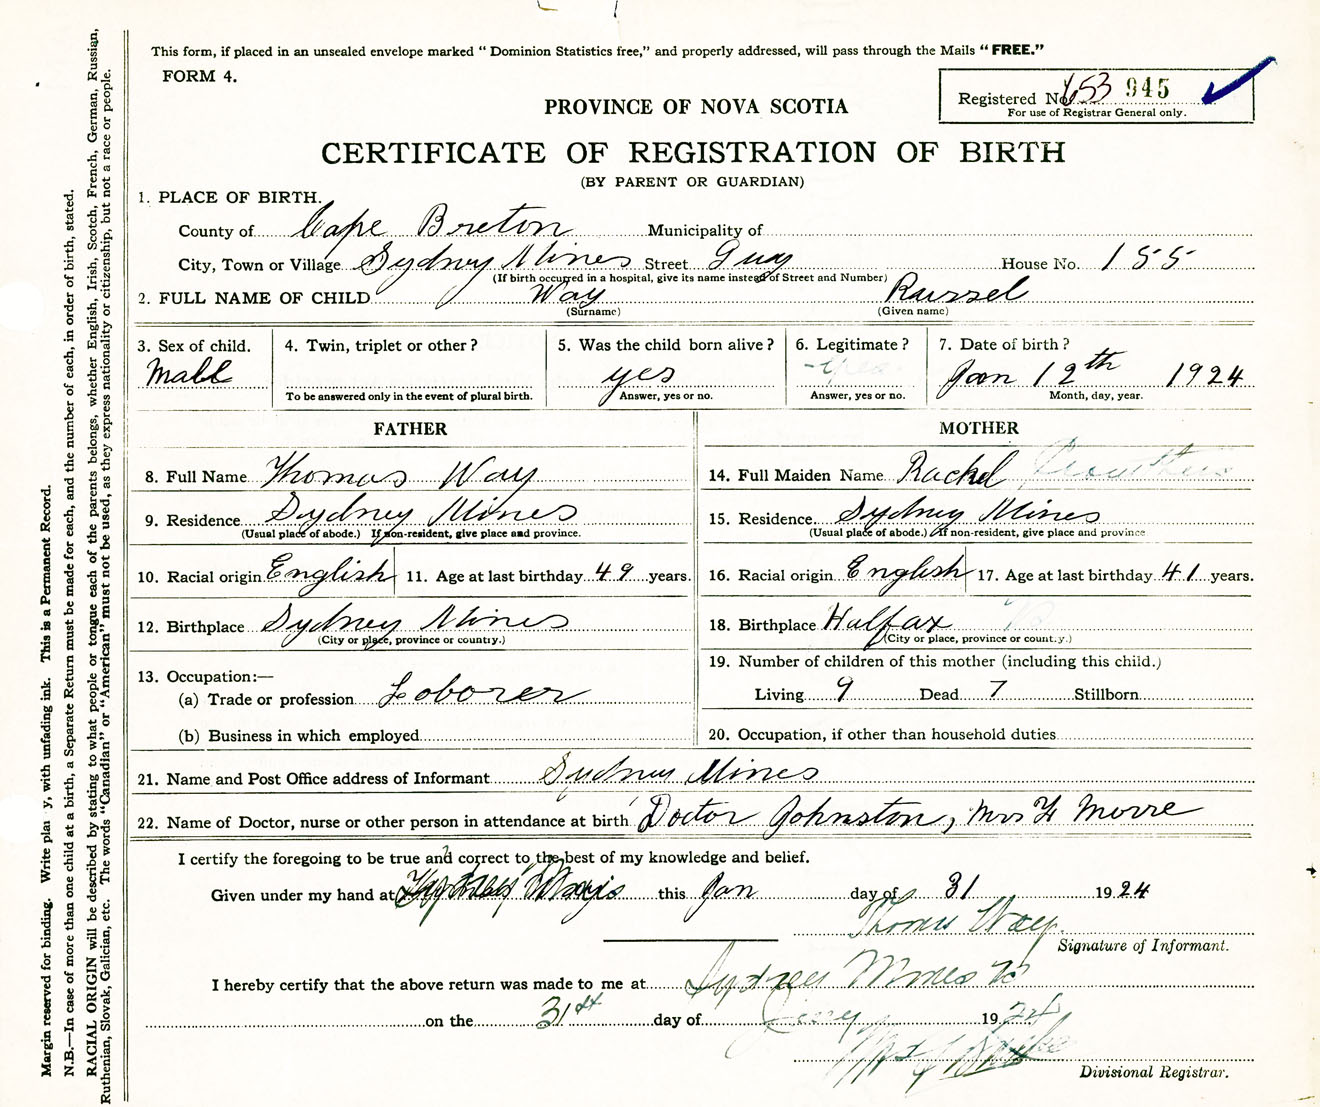 This form, if placed in an unsealed envelope marked "Dominion Statistics free," and properly addressed, will pass through the Mails "FREE."
FORM 4.
Registered No. 653 945
For use of Registrar General only.
PROVINCE OF NOVA SCOTIA
CERTIFICATE OF REGISTRATION OF BIRTH
(BY PARENT OR GUARDIAN)
1. PLACE OF BIRTH.
County of Cape Breton Municipality of
City, Town or Village Sydney Mines Street Guy House No. 155
(If birth occurred in a hospital, give its name instead of Street and Number)
2. FULL NAME OF CHILD Way Russel
(Surname) (Given name)
3. Sex of child. 4. Twin, triplet or other? 5. Was the child born alive? 6. Legitimate? 7. Date of birth?
Male yes yes Jan 12th 1924
To be answered only in the event of plural birth. Answer, yes or no. Answer, yes or no. Month, day, year.
FATHER
8. Full Name Thomas Way
9. Residence Sydney Mines
(Usual place of abode.) If non-resident, give place and province.
10. Racial origin English 11. Age at last birthday 49 years.
12. Birthplace Sydney Mines
(City or place, province or country.)
13. Occupation:—
(a) Trade or profession Loborer
(b) Business in which employed
MOTHER
14. Full Maiden Name Rachel
15. Residence Sydney Mines
(Usual place of abode.) If non-resident, give place and province
16. Racial origin English 17. Age at last birthday 41 years.
18. Birthplace Halfax
(City or place, province or country.)
19. Number of children of this mother (including this child.)
Living 9 Dead 7 Stillborn
20. Occupation, if other than household duties
21. Name and Post Office address of Informant Sydney Mines
22. Name of Doctor, nurse or other person in attendance at birth Doctor Johnston, Mrs Morre
I certify the foregoing to be true and correct to the best of my knowledge and belief.
Given under my hand at this Jan day of 31 1924
Thomas Way
Signature of Informant.
I hereby certify that the above return was made to me at Sydney Mines
on the 31st day of 1924
Divisional Registrar.
Margin reserved for binding. Write plai y, with unfading ink. This is a Permanent Record.
N.B.—In case of more than one child at a birth, a Separate Return must be made for each, and the number of each, in order of birth, stated.
RACIAL ORIGIN will be described by stating to what people or tongue each of the parents belongs, whether English, Irish, Scotch, French, German, Russian,
Ruthenian, Slovak, Galician, etc. The words "Canadian" or "American" must not be used, as they express nationality or citizenship, but not a race or people.